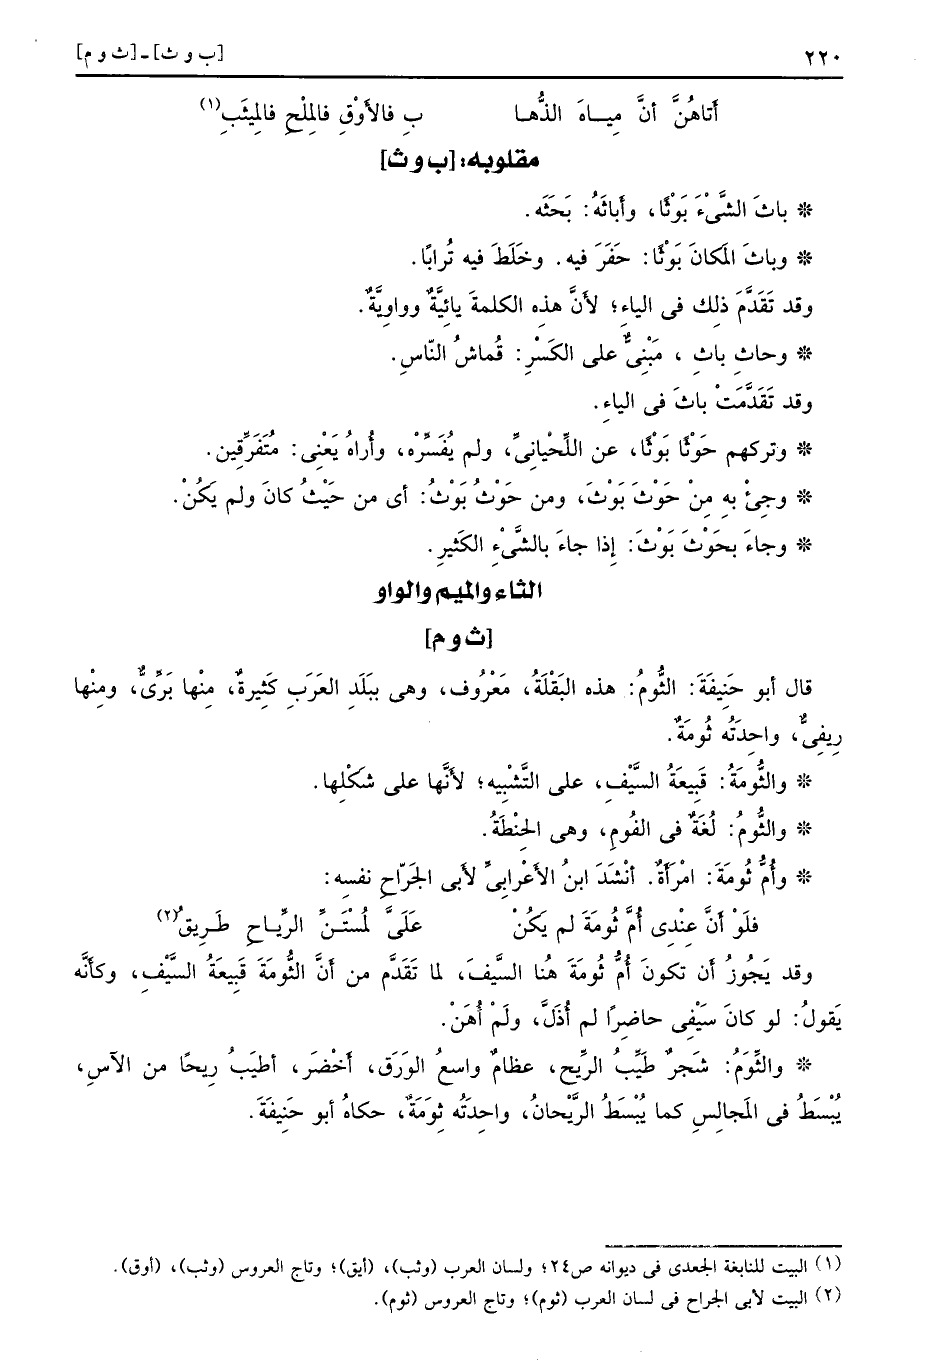 ٢٢٠ [ب و ث] ـ [ث و م]
أتاهُنَّ أنَّ مِيــاهَ الذُّهـا بِ فالأَوْقِ فالمِلْحِ فالمِيثَبِ(١)
مقلوبه: [ب و ث]
* باثَ الشَّىْءَ بَوْثًا، وأباثَهُ: بَحَثَه.
* وباثَ المَكانَ بَوْثًا: حَفَرَ فيه. وخَلَطَ فيه تُرابًا.
وقد تَقَدَّمَ ذلك فى الياء؛ لأنَّ هذه الكلمةَ يائيَّةٌ وواويَّةٌ.
* وحاثِ باثِ ، مَبْنِىٌّ على الكَسْرِ: قُماشُ النّاس.
وقد تَقَدَّمَتْ باثَ فى الياءِ.
* وتركهم حَوْثًا بَوْثًا، عن اللِّحْيانىِّ، ولم يُفَسِّرْه، وأُراهُ يَعْنِى: مُتَفَرِّقِين.
* وجِئْ به مِنْ حَوْثَ بَوْثَ، ومن حَوْثُ بَوْثُ: أى من حَيْثُ كانَ ولم يَكُنْ.
* وجاءَ بحَوْثَ بَوْثَ: إذا جاءَ بالشَّىْءِ الكَثيرِ.
الثاء والميم والواو
[ث و م]
قال أبو حَنِيفَةَ: الثُّومُ: هذه البَقْلَةُ، مَعْرُوف، وهى ببَلَدِ العَرَبِ كَثِيرةٌ، مِنْها بَرِّىٌّ، ومنْها
رِيفِىٌّ، واحِدَتُه ثُومَةٌ.
* والثُّومَةُ: قَبِيعَةُ السَّيْفِ، على التَّشْبِيه؛ لأنَّها على شَكْلِها.
* والثُّومُ: لُغَةٌ فى الفُومِ، وهى الحِنْطَةُ.
* وأُمُّ ثُومَةَ: امْرَأةٌ. أنْشَدَ ابنُ الأعْرابىِّ لأبى الجَرّاحِ نفسِه:
فلَوْ أنَّ عِنْدِى أُمَّ ثُومَةَ لم يَكُنْ عَلَىَّ لمُسْتَـنِّ الرِّيـاحِ طَـرِيق(٢)
وقد يَجُوزُ أن تكونَ أُمُّ ثُومَةَ هُنا السَّيفَ، لما تَقَدَّم من أنَّ الثُّومَةَ قَبِيعَةُ السَّيْفِ، وكأنَّه
يَقولُ: لو كانَ سَيْفِى حاضِرًا لم أُذَلَّ، ولَمْ أُهَنْ.
* والثِّوَمُ: شَجرٌ طَيِّبُ الرِّيحِ، عظامٌ واسعُ الوَرَقِ، أخْضَر، أطيَبُ رِيحًا من الآسِ،
يُبْسَطُ فى المَجالِسِ كما يُبْسَطُ الرَّيْحانُ، واحِدَتُه ثِوَمَةٌ، حكاهُ أبو حَنِيفَةَ.
(١) البيت للنابغة الجعدى فى ديوانه ص٢٤؛ ولسان العرب (وثب)، (أيق)؛ وتاج العروس (وثب)، (أوق).
(٢) البيت لأبى الجراح فى لسان العرب (ثوم)؛ وتاج العروس (ثوم).